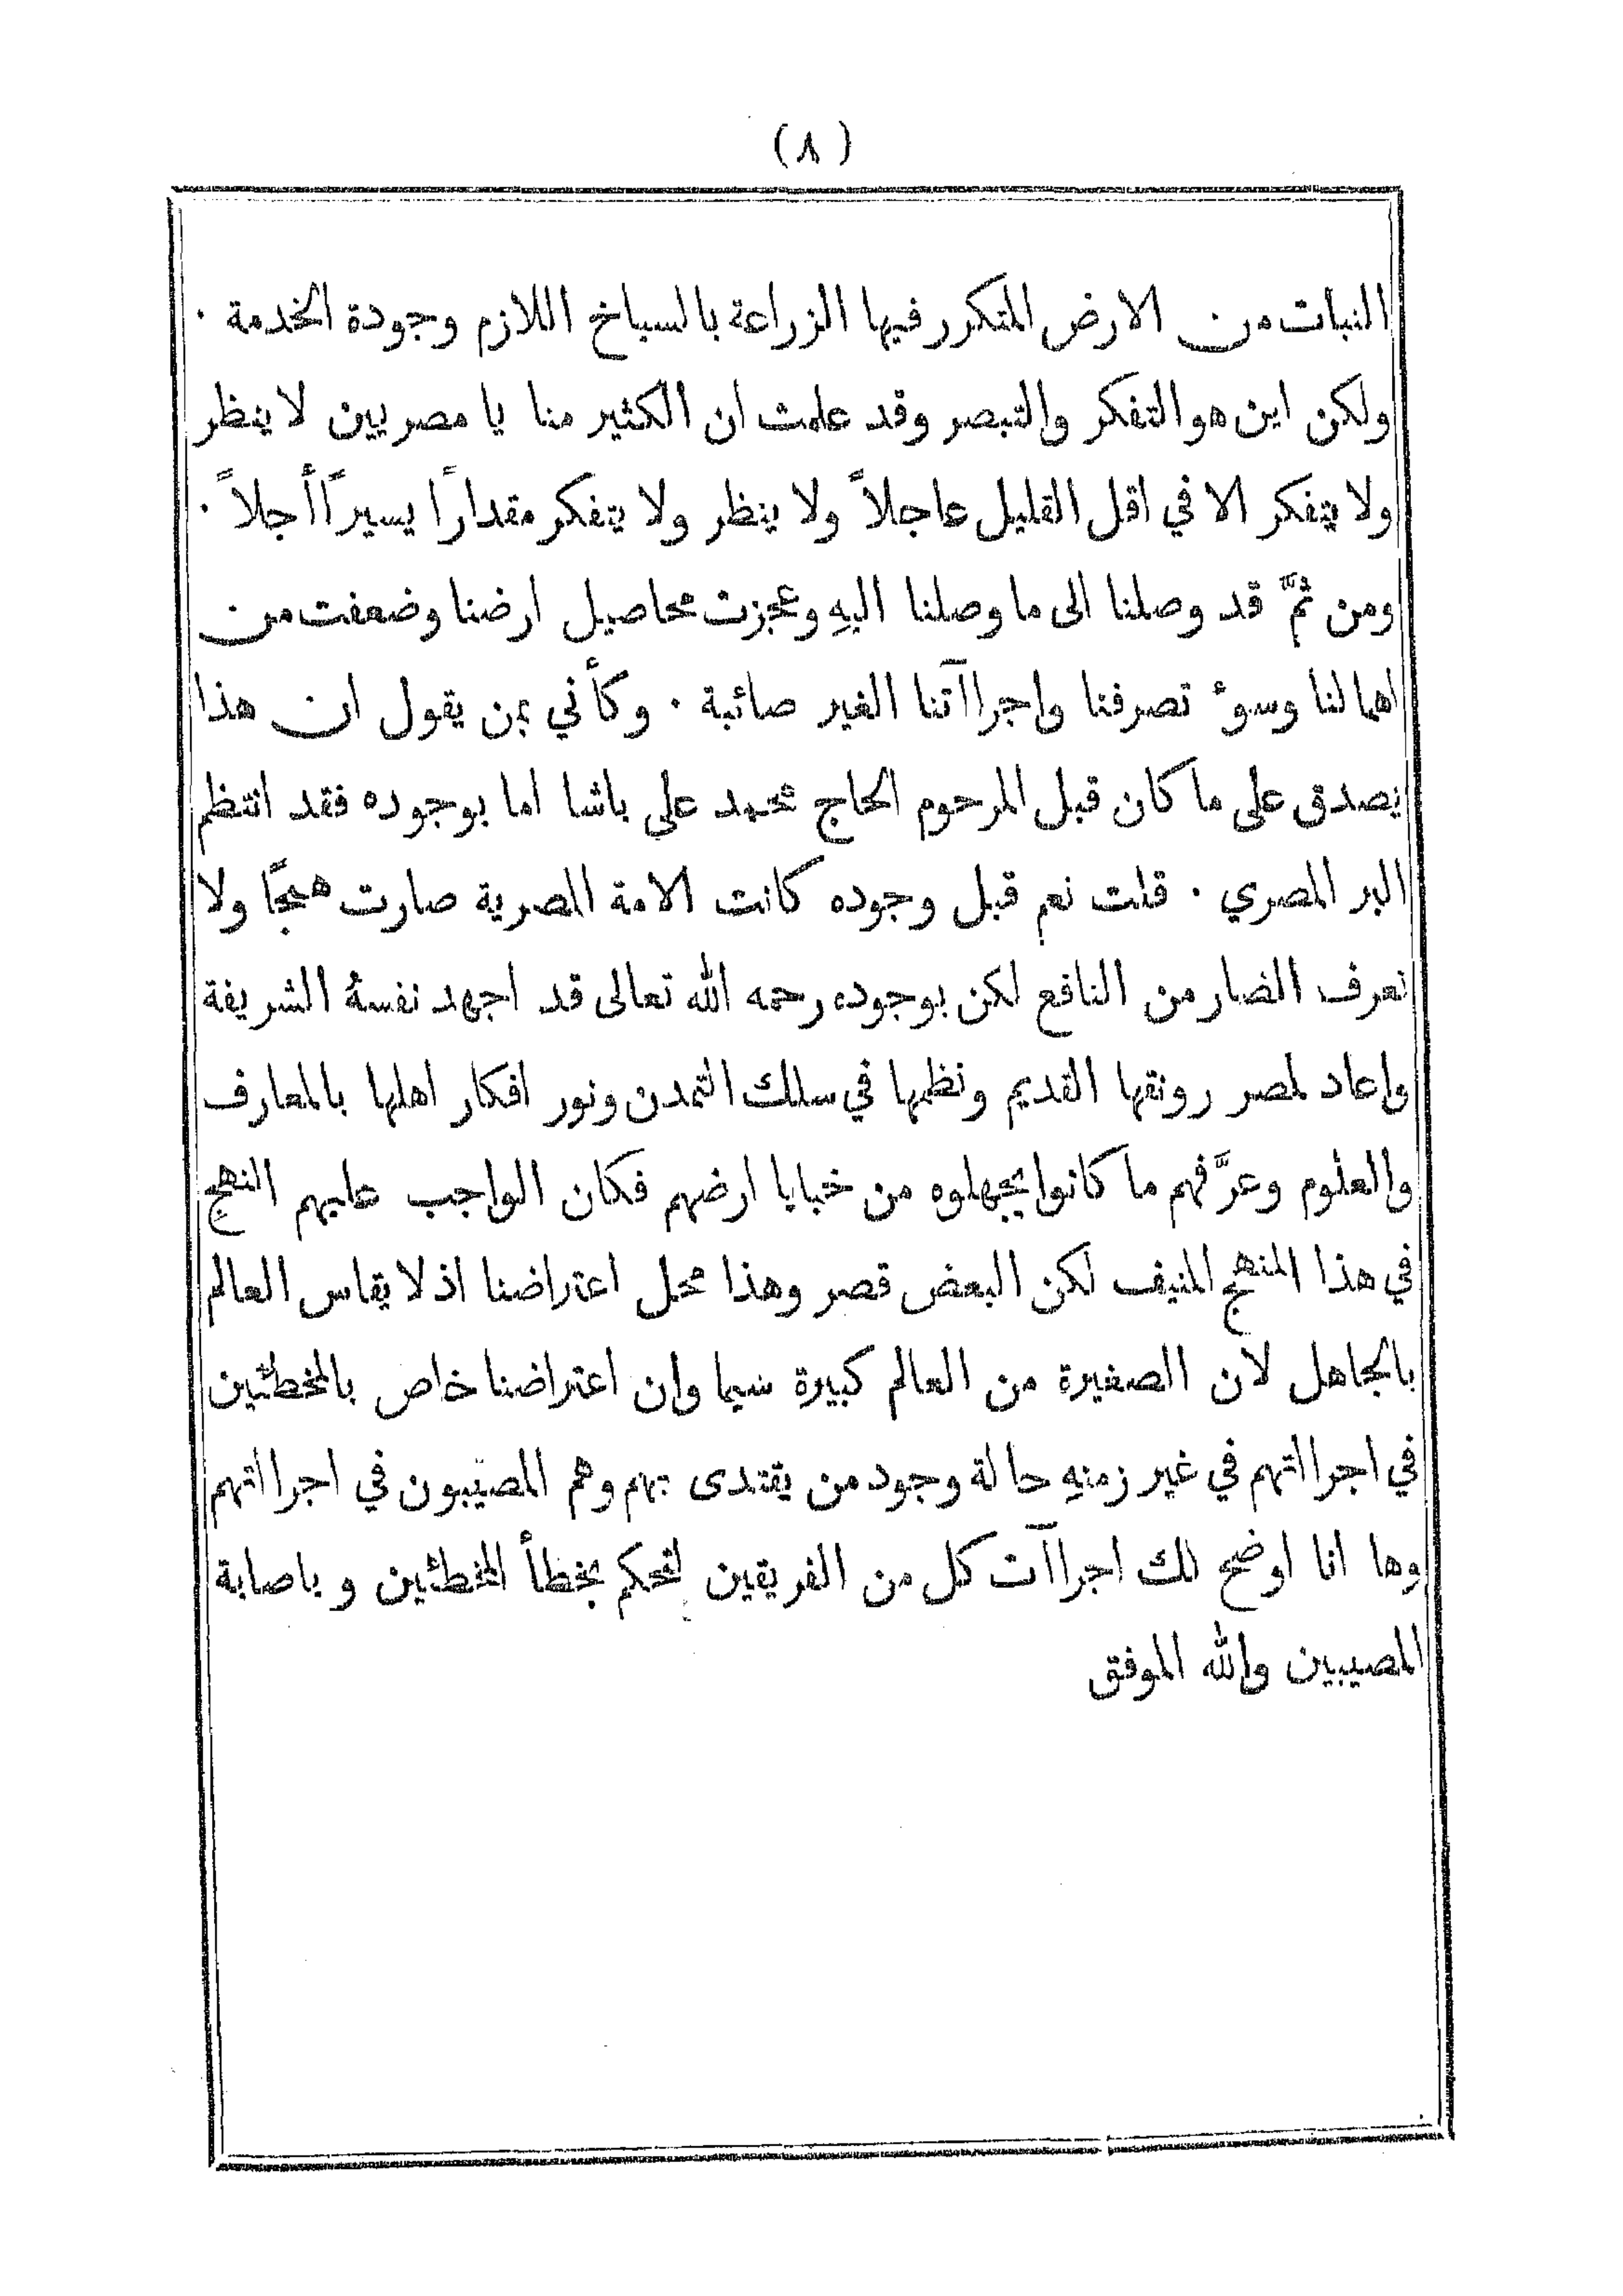 (٨)
النبات من الارض المتكرر فيها الزراعة بالسباخ اللازم وجودة الخدمة ·
ولكن اين هو التفكر والتبصر وقد علمت ان الكثير منا يا مصريين لا ينظر
ولا يتفكر الا في اقل القليل عاجلاً ولا ينظر ولا يتفكر مقدارًا يسيرًا أجلاً ·
ومن ثمَّ قد وصلنا الى ما وصلنا اليهِ وعجزت محاصيل ارضنا وضعفت من
اهمالنا وسوءِ تصرفنا واجراآتنا الغير صائبة · وكأني بمن يقول ان هذا
يصدق على ما كان قبل المرحوم الحاج محمد علي باشا اما بوجوده فقد انتظم
البر المصري · قلت نعم قبل وجوده كانت الامة المصرية صارت همجًا ولا
تعرف الضار من النافع لكن بوجوده رحمه الله تعالى قد اجهد نفسهُ الشريفة
واعاد لمصر رونقها القديم ونظمها في سلك التمدن ونور افكار اهلها بالمعارف
والعلوم وعرَّفهم ما كانوا يجهلوه من خبايا ارضهم فكان الواجب عليهم النهج
في هذا المنهج المنيف لكن البعض قصر وهذا محل اعتراضنا اذ لا يقاس العالم
بالجاهل لان الصغيرة من العالم كبيرة سيما وان اعتراضنا خاص بالمخطئين
في اجرااتهم في غير زمنهِ حالة وجود من يقتدى بهم وهم المصيبون في اجرااتهم
وها انا اوضح لك اجراآت كل من الفريقين لتحكم بخطأ المخطئين و باصابة
المصيبين والله الموفق